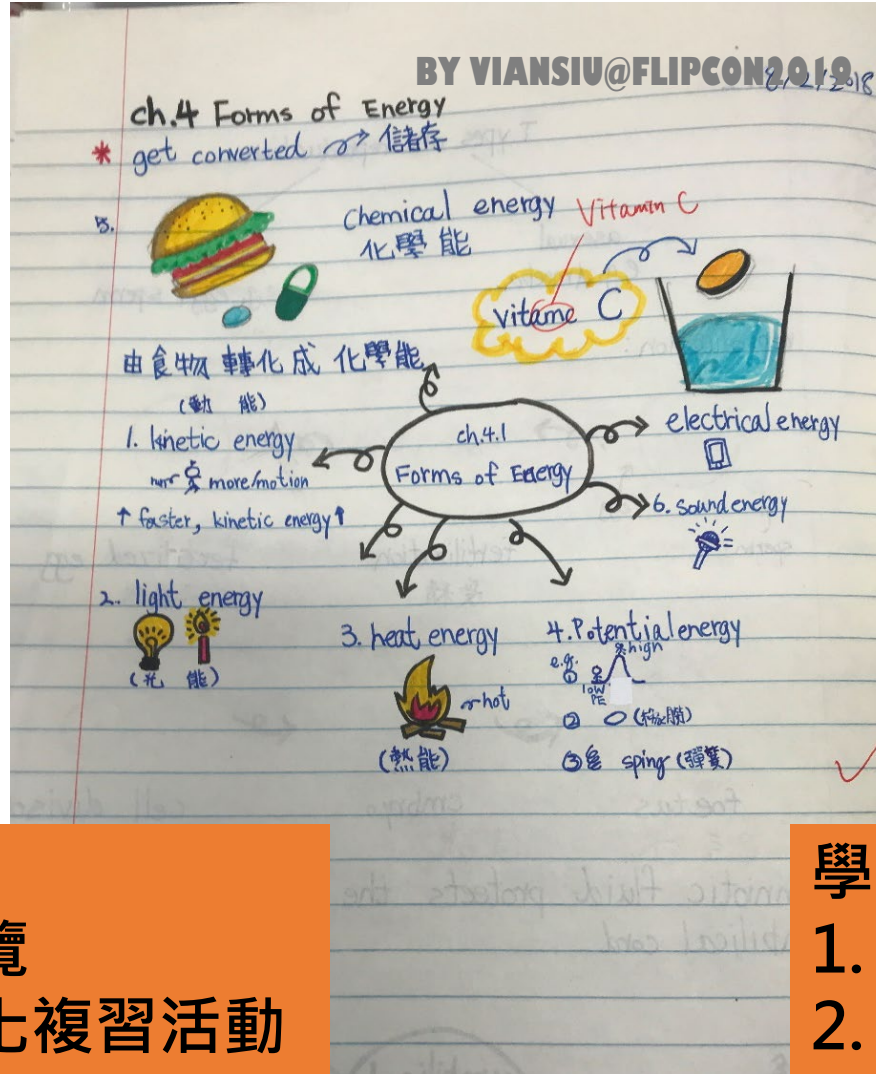 BY VIANSIU@FLIPCON2018
8/2/2018
ch.4 Forms of Energy
* get converted → 儲存
5.
chemical energy
化學能
Vitamin C
vitame C
由食物轉化成 化學能
(動 能)
1. kinetic energy
more/motion
↑ faster, kinetic energy↑
ch.4.1
Forms of Energy
electrical energy
6. sound energy
2. light energy
(光 能)
3. heat energy
hot
(熱能)
4. Potential energy
high
e.g.
①
low
PE
②
③ sping (彈簧)
覽
七複習活動
學
1.
2.